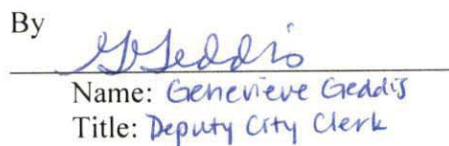 By
GGeddis
Name: Genevieve Geddis
Title: Deputy City Clerk